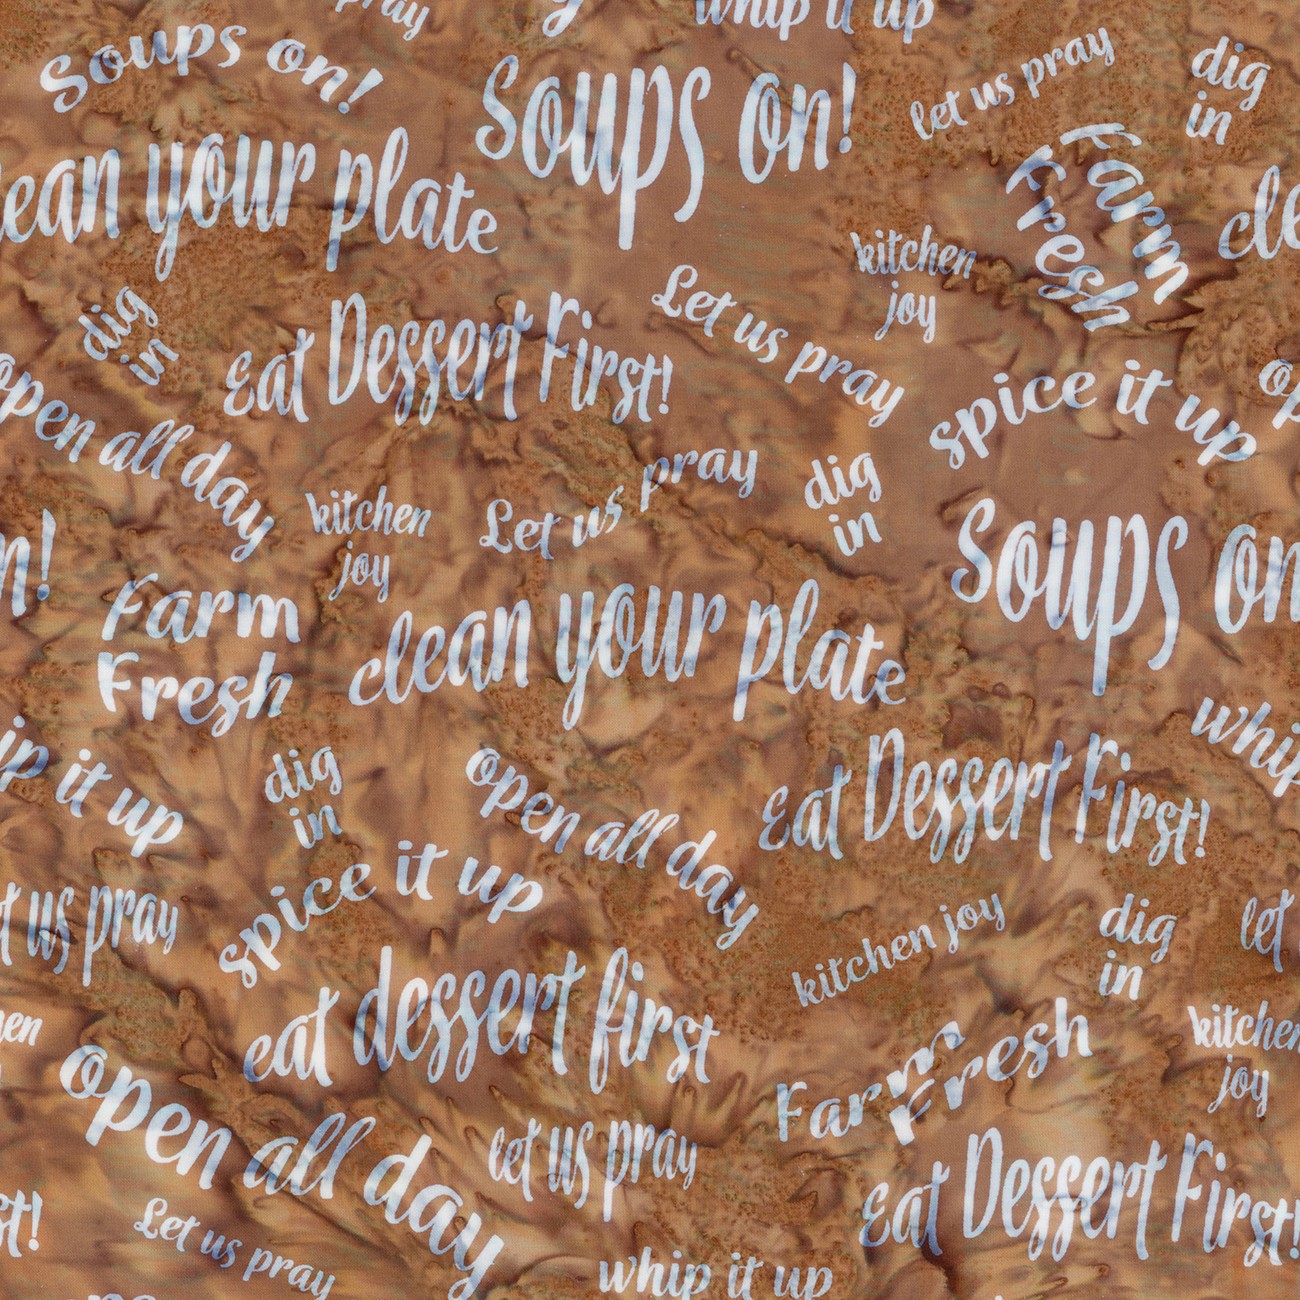 pray
whip it up
Soups on!
Soups on!
let us pray
dig
in
lean your plate
Farm
Fresh
cle
kitchen
joy
dig
in
Eat Dessert First!
Let us pray
spice it up
op
open all day
kitchen
joy
Let us pray
dig
in
Soups on
n!
Farm
Fresh
clean your plate
whip
ip it up
dig
in
open all day
Eat Dessert First!
spice it up
t us pray
kitchen joy
dig
in
let
eat dessert first
hen
Farm
Fresh
kitchen
joy
open all day
let us pray
Eat Dessert First!
st!
Let us pray
whip it up